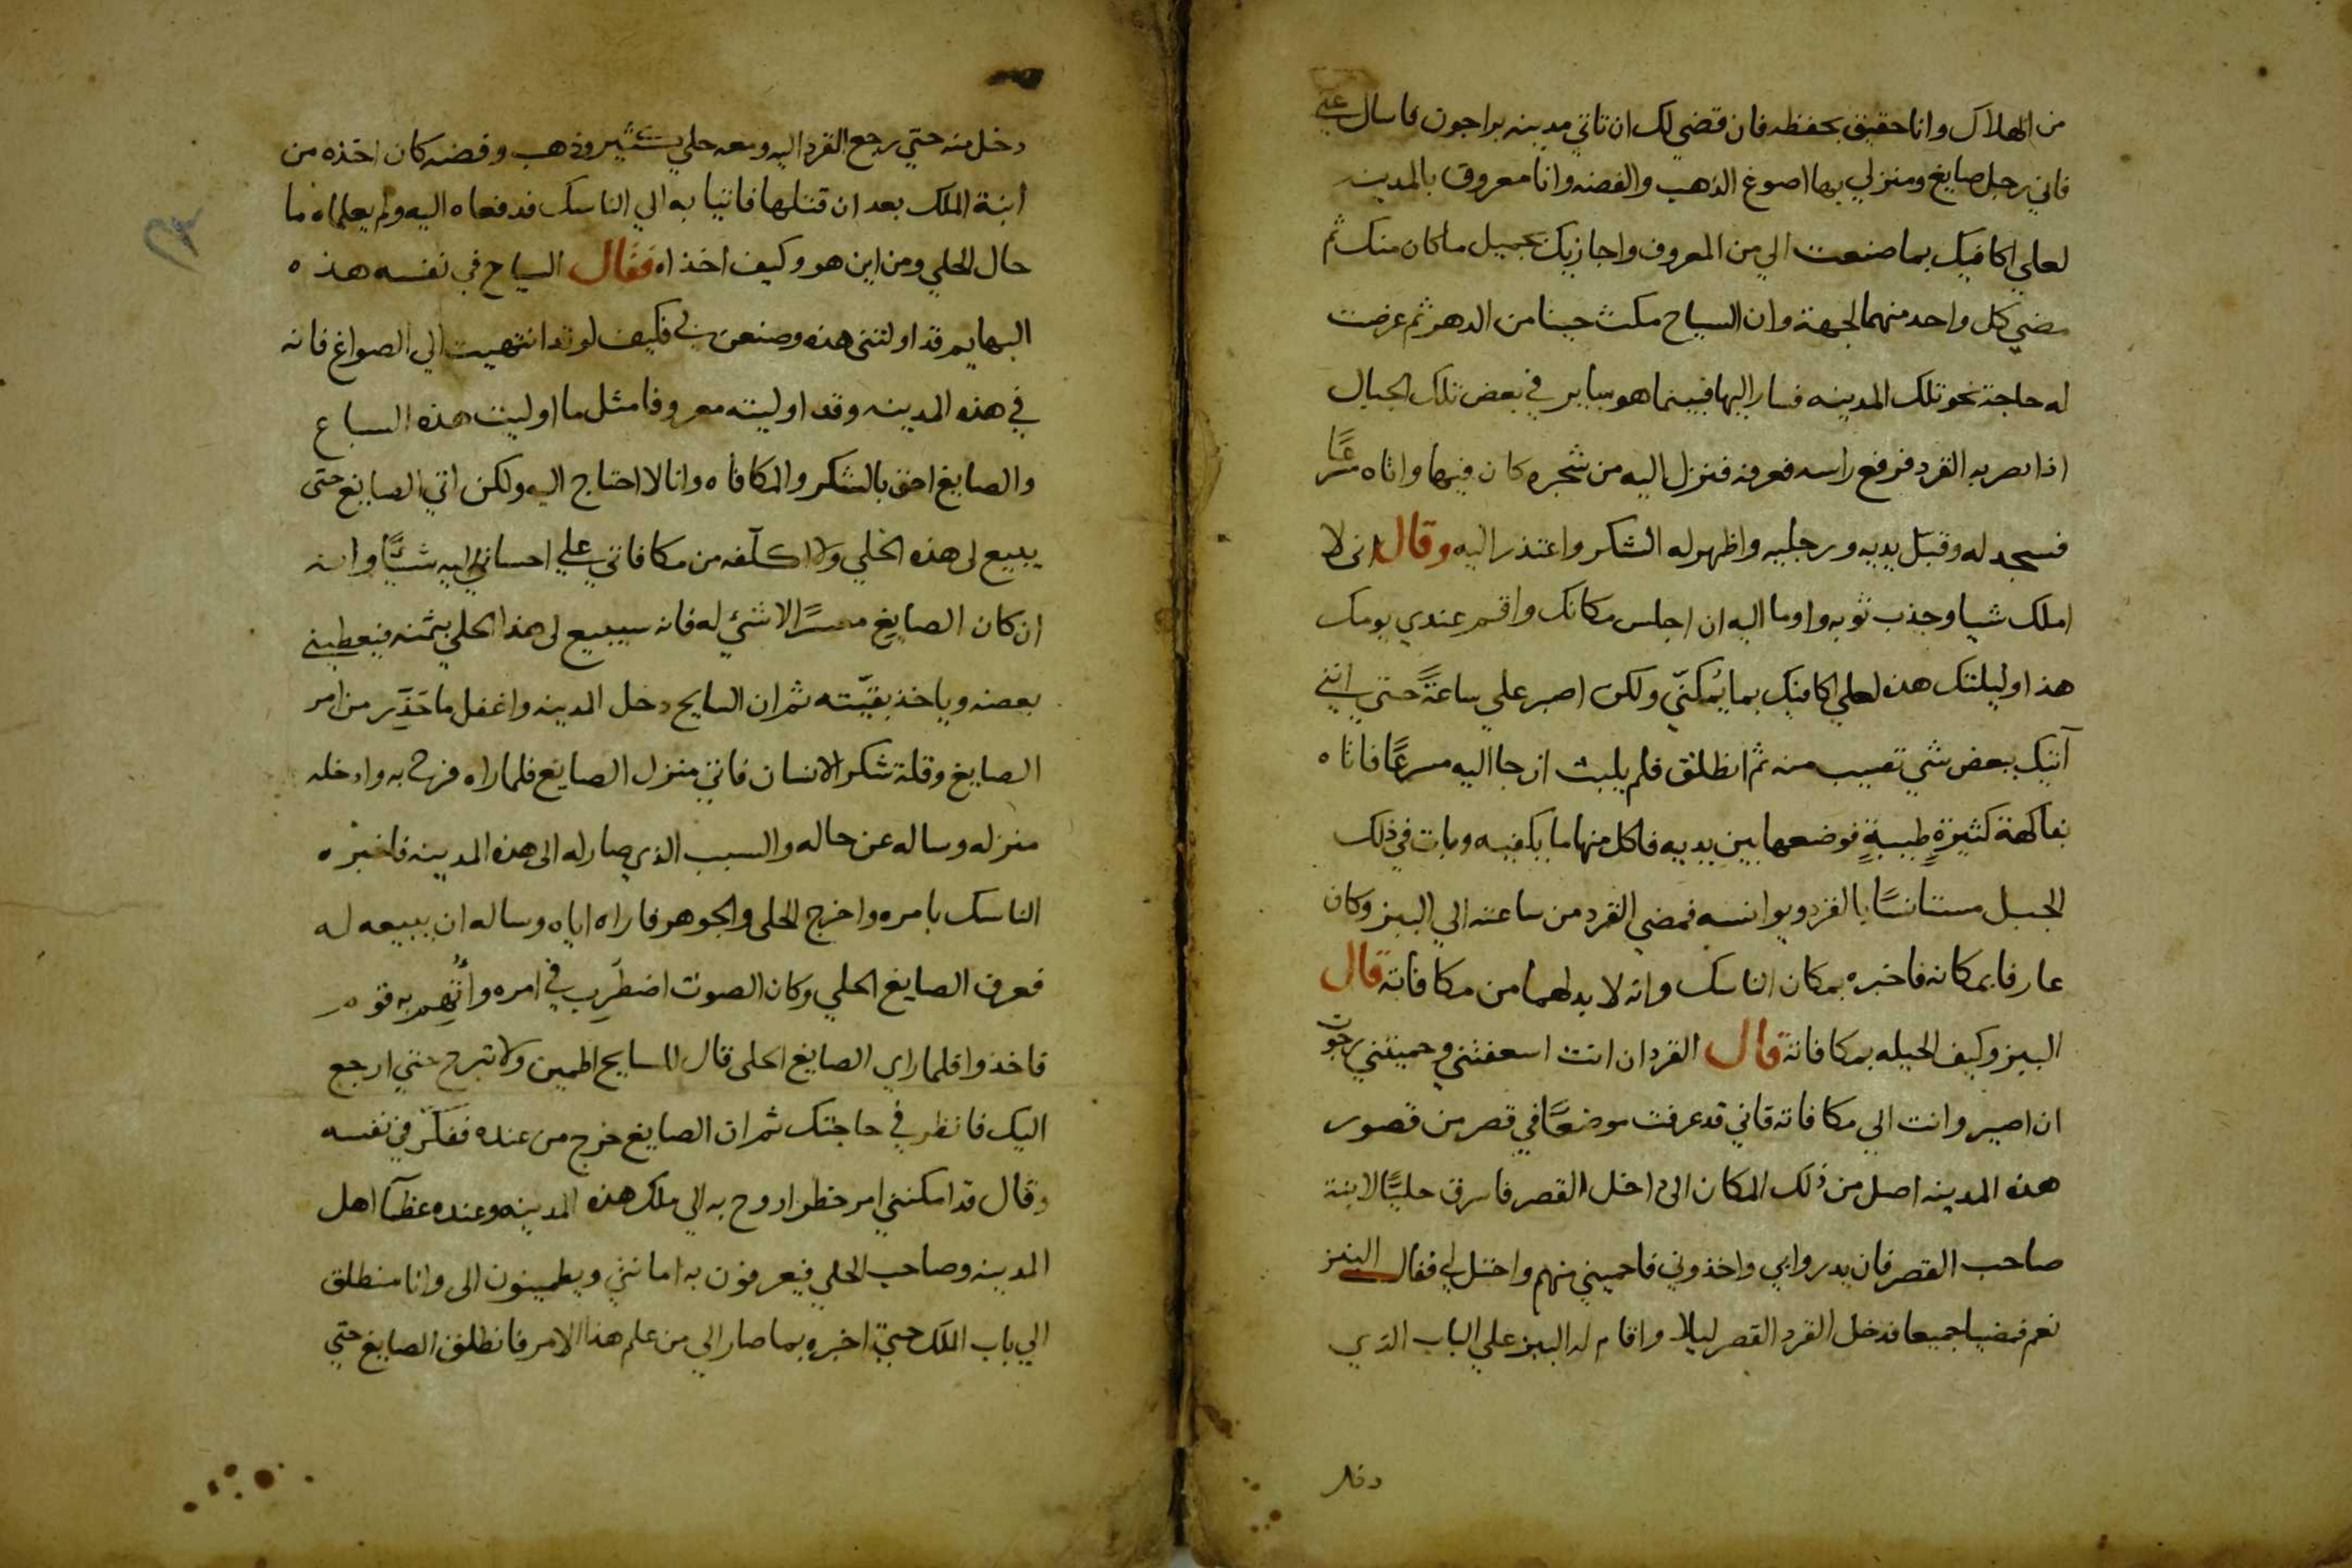 من الهلاك وانا حقيق بحفظه فان قضي لك ان تاتي مدينه براجون فاسال عني
فاني رجل صايغ ومنزلي بها اصوغ الذهب والفضه وانا معروف بالمدينه
لعلي اكافيك بما صنعت الي من المعروف واجازيك بجميل ما كان منك ثم
مضي كل واحد منهما لجهة وان السياح مكث حينا من الدهر ثم عرضت
له حاجة نحو تلك المدينه فسار اليها فبينما هو ساير في بعض تلك الجبال
اذا بصر به القرد فرفع راسه فعرفه فنزل اليه من شجره كان فيها واتاه مسرعًا
فسجد له وقبّل يديه ورجليه واظهر له الشكر واعتذر اليه وقال اني لا
املك شيا وجذب ثوبه واوما اليه ان اجلس مكانك واقم عندي يومك
هذا وليلتك هذه لعلي اكافيك بما يُمكنّي ولكن اصبر علي ساعةً حتي انني
آتيك ببعض شي تصيب منه ثم انطلق فلم يلبث ان جا اليه مسرعًا فاتاه
بفاكهة كثيرةٍ طيبةٍ فوضعها بين يديه فاكل منها ما يكفيه وبات في ذلك
الجبل مستانسًا بالقرد ويوانسه فمضي القرد من ساعته الي الببز وكان
عارفا بمكانه فاخبره بمكان الناسك وانه لا بد لهما من مكافاته قال
الببز وكيف الحيله بمكافاته قال القرد ان انت اسعفتني وحميتني رجوت
ان اصير وانت الي مكافاته فاني قد عرفت موضعًا في قصر من قصور
هذه المدينه اصل من ذلك المكان الي داخل القصر فاسرق حليًّا لابنة
صاحب القصر فان بدروا بي واخذوني فاحميني منهم واختل لي فقال الببز
نعم فمضيا جميعا فدخل القرد القصر ليلا واقام له الببز علي الباب الذي
دخل منه حتي رجع القرد اليه ومعه حلي كثير وذهب وفضه كان اخذه من
ابنة الملك بعد ان قتلها فاتيا به الي الناسك فدفعاه اليه ولم يعلماه ما
حال الحلي ومن اين هو وكيف اخذاه فقال السياح في نفسه هذه
البهايم قد اولتني هذه وصنعن بي فكيف لو قد انتهيت الي الصواغ فانه
في هذه المدينه وقد اوليته معروفا مثل ما اوليت هذه السباع
والصايغ احق بالشكر والمكافاه وانا لا احتاج اليه ولكن اتي الصايغ حتي
يبيع لي هذه الحلي ولا اكلّفه من مكافاتي علي احساني اليه شيًّا وانه
ان كان الصايغ معسرًا لا شيء له فانه سيبيع لي هذا الحلي بثمنه فيعطيني
بعضه وياخذ بقيّته ثم ان السايح دخل المدينه واغفل ما حَذّر من امر
الصايغ وقلة شكر الانسان فاتي منزل الصايغ فلما راه فرح به وادخله
منزله وساله عن حاله والسبب الذي صار له الي هذه المدينه فاخبره
الناسك بامره واخرج الحلي والجوهر فاراه اياه وساله ان يبيعه له
فعرف الصايغ الحلي وكان الصوت اضطرب في امره وأتّهم به قوم
فاخذوا فلما راي الصايغ الحلي قال للسايح اطمين ولا تبرح حتي ارجع
اليك فانظر في حاجتك ثم ان الصايغ خرج من عنده ففكّر في نفسه
وقال قد امكنني امر خطر اروح به الي ملك هذه المدينه وعنده عظمآ اهل
المدينه وصاحب الحلي فيعرفون به امانتي ويطمينون الي وانا منطلق
الي باب الملك حتي اخبره بما صار الي من علم هذا الامر فانطلق الصايغ حتي
دخل